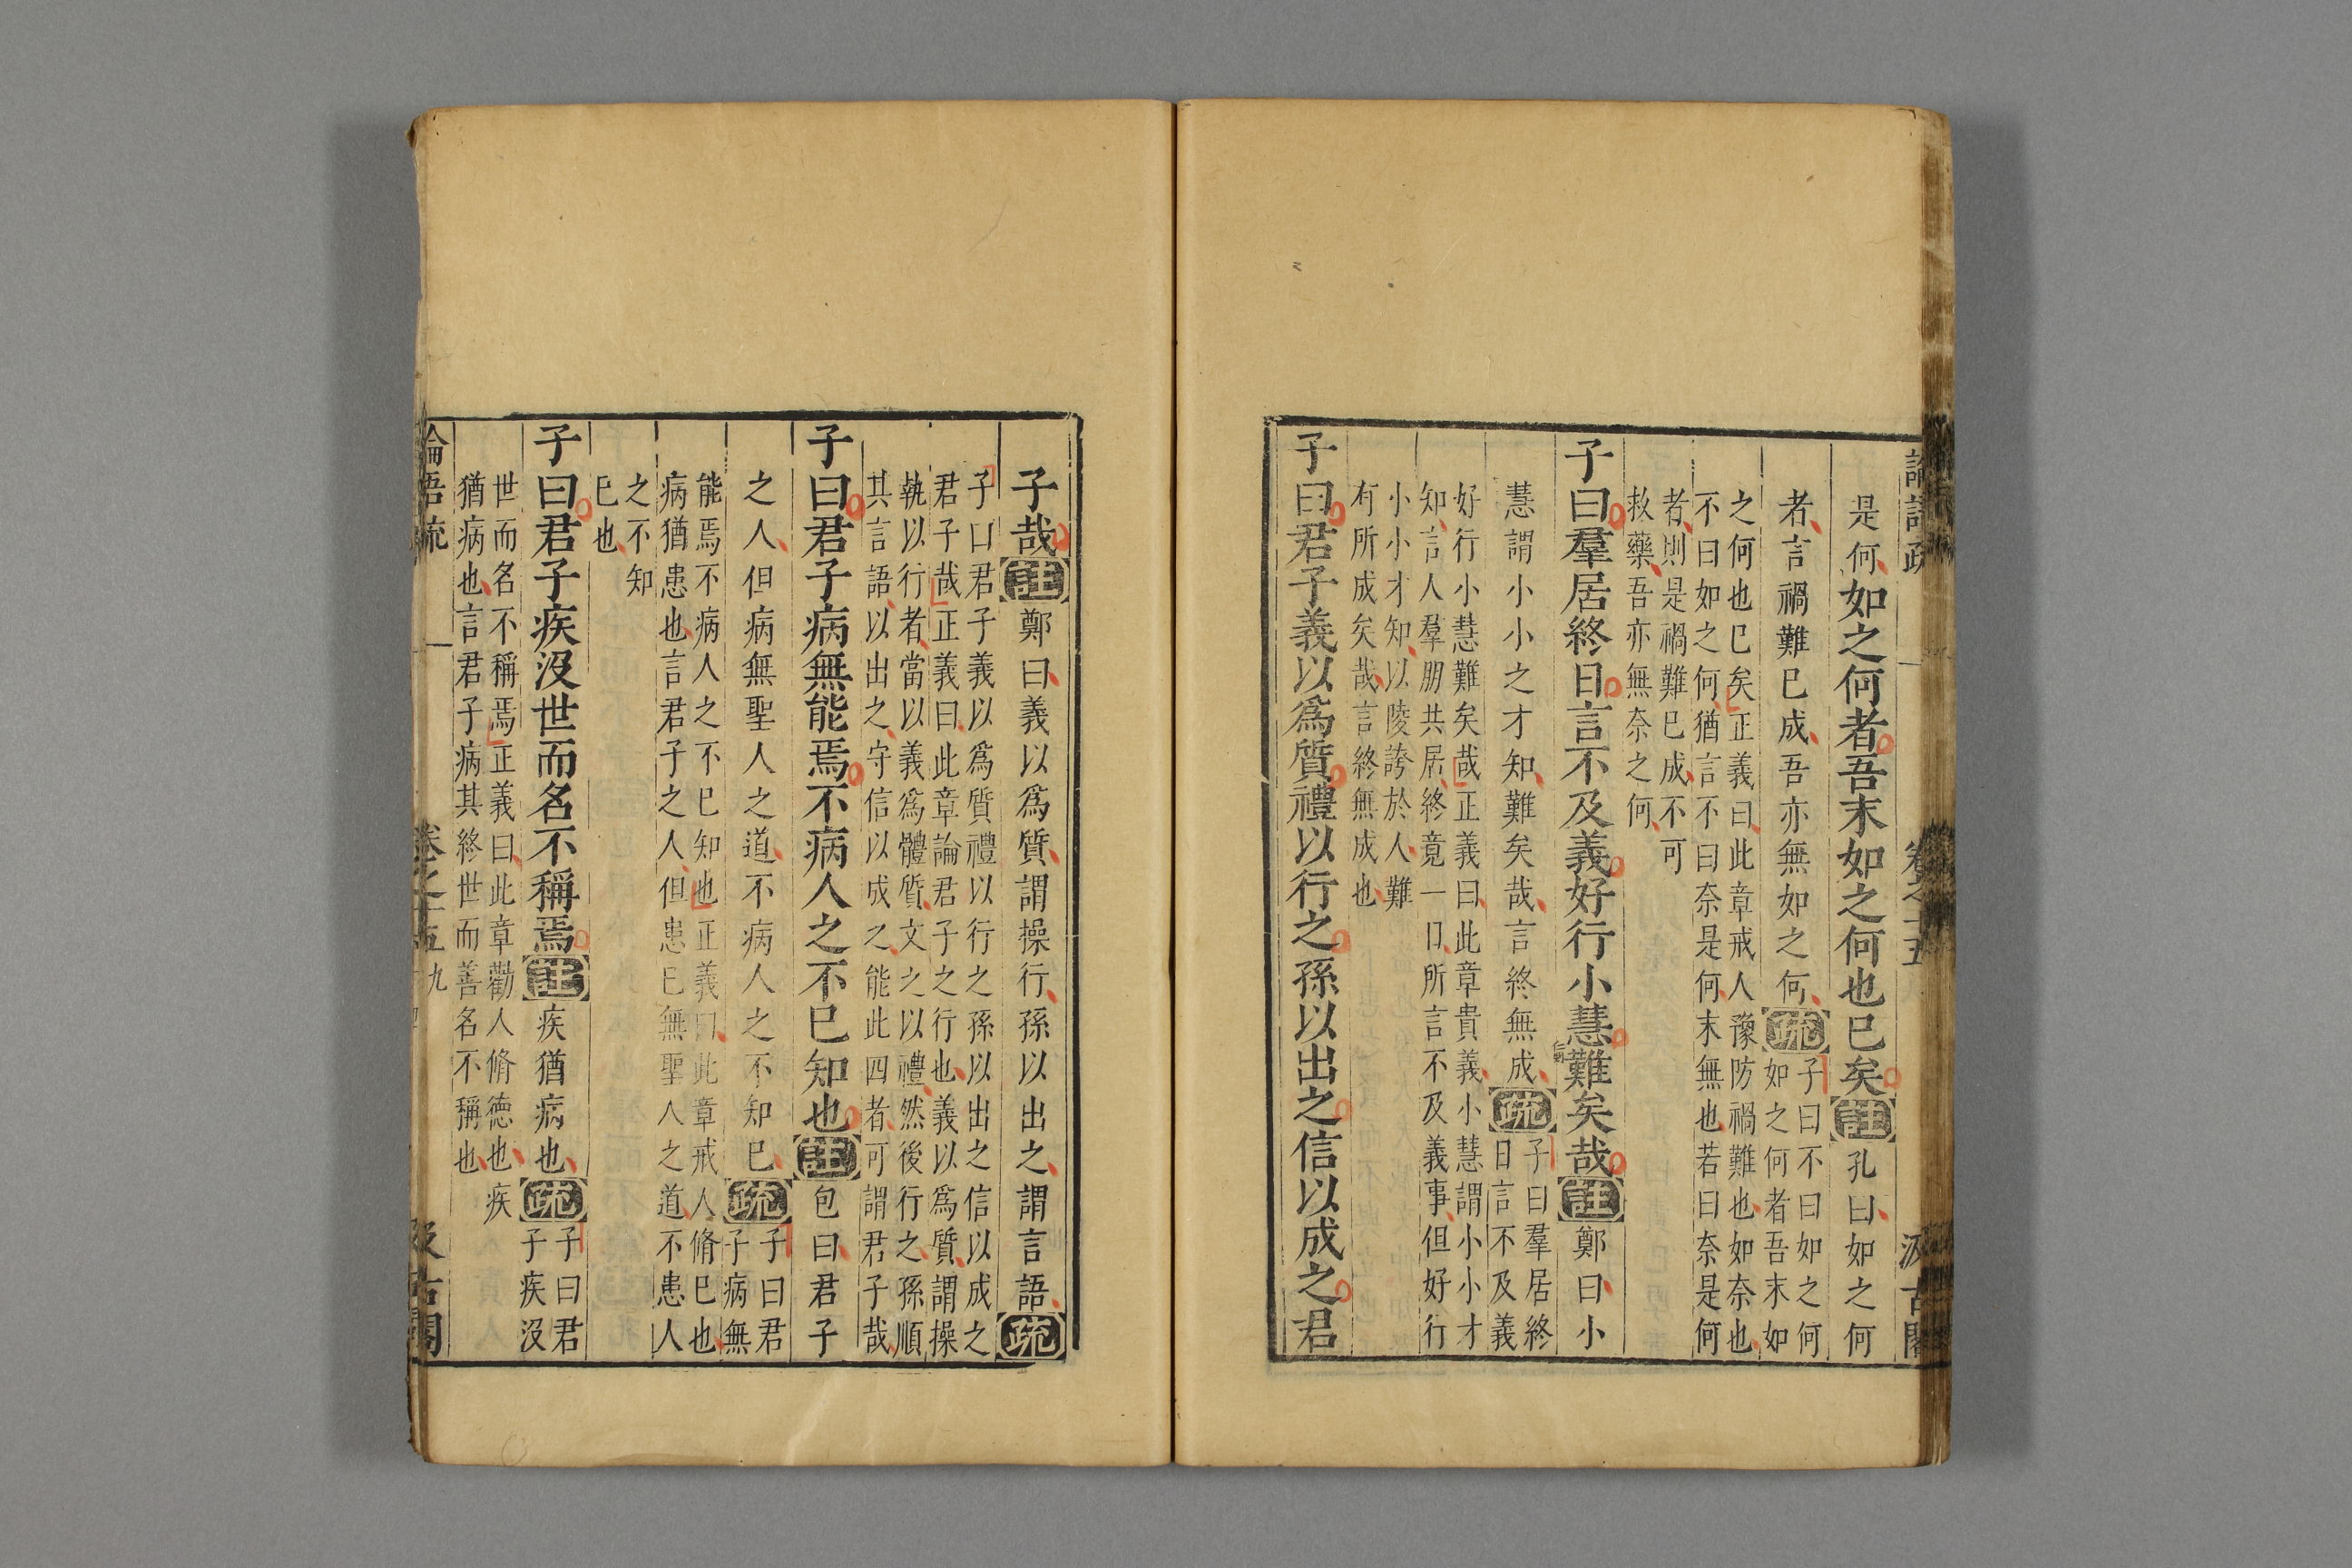 論語疏 卷之十五 汲古閣
是何如之何者吾末如之何也已矣註孔曰如之何
者言禍難已成吾亦無如之何疏
子曰不曰如之何
如之何者吾末如
之何也已矣正義曰此章戒人豫防禍難也如奈也
不曰如之何猶言不曰奈是何末無也若曰奈是何
者則是禍難已成不可
救藥吾亦無奈之何
子曰羣居終日言不及義好行小慧難矣哉註鄭曰小
慧謂小小之才知難矣哉言終無成疏
子曰羣居終
日言不及義
好行小慧難矣哉正義曰此章貴義小慧謂小小才
知言人羣朋共居終竟一日所言不及義事但好行
小小才知以陵誇於人難
有所成矣哉言終無成也
子曰君子義以爲質禮以行之孫以出之信以成之君
子哉註鄭曰義以爲質謂操行孫以出之謂言語疏
子曰君子義以爲質禮以行之孫以出之信以成之
君子哉正義曰此章論君子之行也義以爲質謂操
執以行者當以義爲體質文之以禮然後行之孫順
其言語以出之守信以成之能此四者可謂君子哉
子曰君子病無能焉不病人之不已知也註包曰君子
之人但病無聖人之道不病人之不知已疏
子曰君
子病無
能焉不病人之不已知也正義曰此章戒人脩已也
病猶患也言君子之人但患已無聖人之道不患人
之不知
已也
子曰君子疾沒世而名不稱焉註疾猶病也疏
子曰君
子疾沒
世而名不稱焉正義曰此章勸人脩德也疾
猶病也言君子病其終世而善名不稱也
論語疏 卷之十五 九 汲古閣